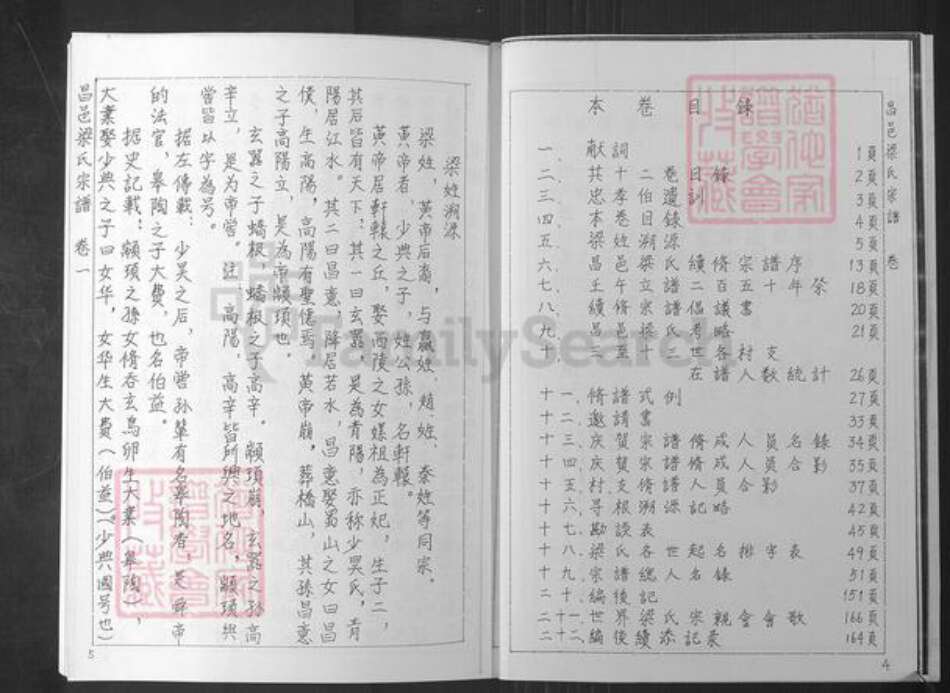 昌邑梁氏宗譜 卷
本卷目錄
一、献詞 1頁
二、其十卷目錄 2頁
三、忠孝二伯遺訓 3頁
四、本卷目錄 4頁
五、梁姓溯源 5頁
六、昌邑梁氏續修宗譜序 13頁
七、立譜二百五十年祭 18頁
八、續修宗譜倡議書 20頁
九、昌邑梁氏考略 21頁
十、一至十三世各村支
在譜人数統計 26頁
十一、修譜式例 27頁
十二、邀請書 33頁
十三、庆賀宗譜修成人員名錄 34頁
十四、庆賀宗譜修成人員合影 35頁
十五、村支修譜人員合影 37頁
十六、寻根溯源記略 42頁
十七、勘誤表 45頁
十八、梁氏各世起名排字表 49頁
十九、宗譜總人名錄 51頁
二十、編後記 151頁
二十一、世界梁氏宗親会會歌 166頁
二十二、編後續添記录 164頁
4
梁姓溯源
梁姓、黄帝后裔，与嬴姓、趙姓、秦姓等同宗。
黄帝者，少典之子，姓公孫，名軒轅。
黄帝居軒轅之丘，娶西陵之女嫘祖為正妃，生子二，
其后皆有天下：其一曰玄囂，是為青陽，亦称少昊氏，青
陽居江水。其二曰昌意，降居若水，昌意娶蜀山之女曰昌
僕，生高陽，高陽有聖德焉。黄帝崩，葬橋山，其孫昌意
之子高陽立，是為帝顓頊也。
玄囂之子蟜极，蟜极之子高辛。顓頊崩，玄囂之孙高
辛立，是为帝喾。注：高陽、高辛皆所興之地名，顓頊與
喾皆以字為号。
据左傳載：少昊之后，帝喾孙輩有名皋陶者，是舜帝
的法官，皋陶之子大費，也名伯益。
据史記載：顓頊之孫女修吞玄鳥卵生大業（皋陶），
大業娶少典之子曰女华，女华生大費（伯益）（少典國号也）
昌邑梁氏宗譜 卷一
5
FamilySearch